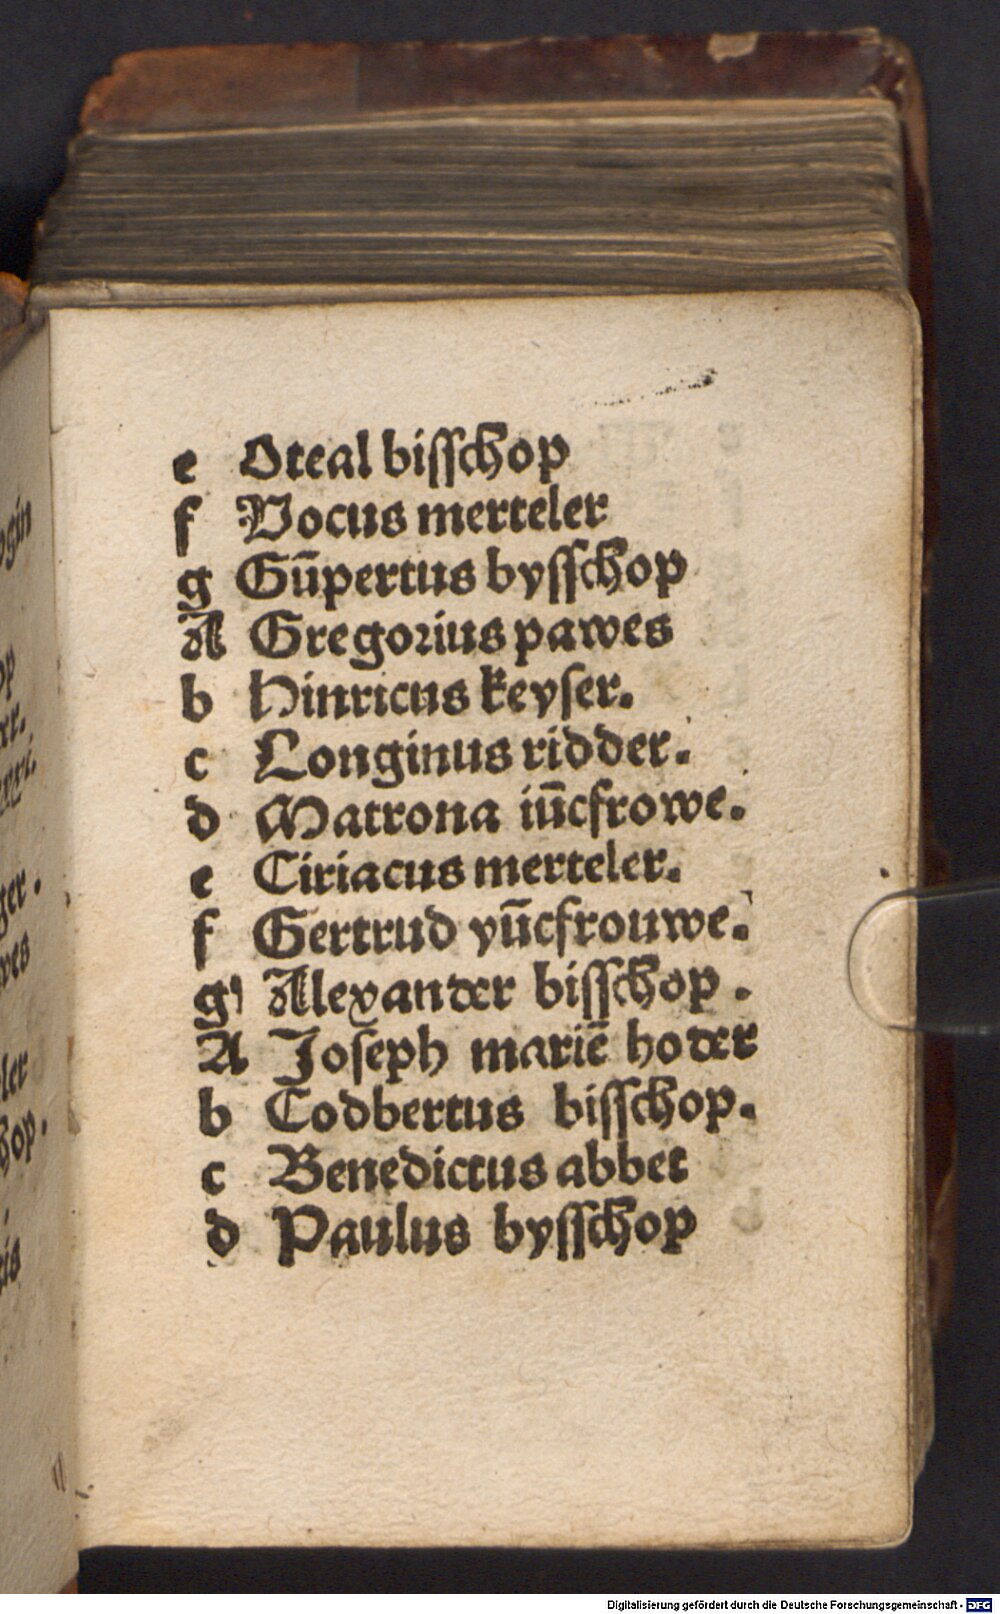 e Oteal bisschop
f Vocus merteler
g Gūpertus bysschop
A Gregorius pawes
b Hinricus keyser.
c Longinus ridder.
d Matrona iūcfrowe.
e Ciriacus merteler.
f Gertrud yūcfrouwe.
g Alexander bisschop.
A Joseph mariē hoder
b Codbertus bisschop.
c Benedictus abbet
d Paulus bysschop
Digitalisierung gefördert durch die Deutsche Forschungsgemeinschaft - DFG